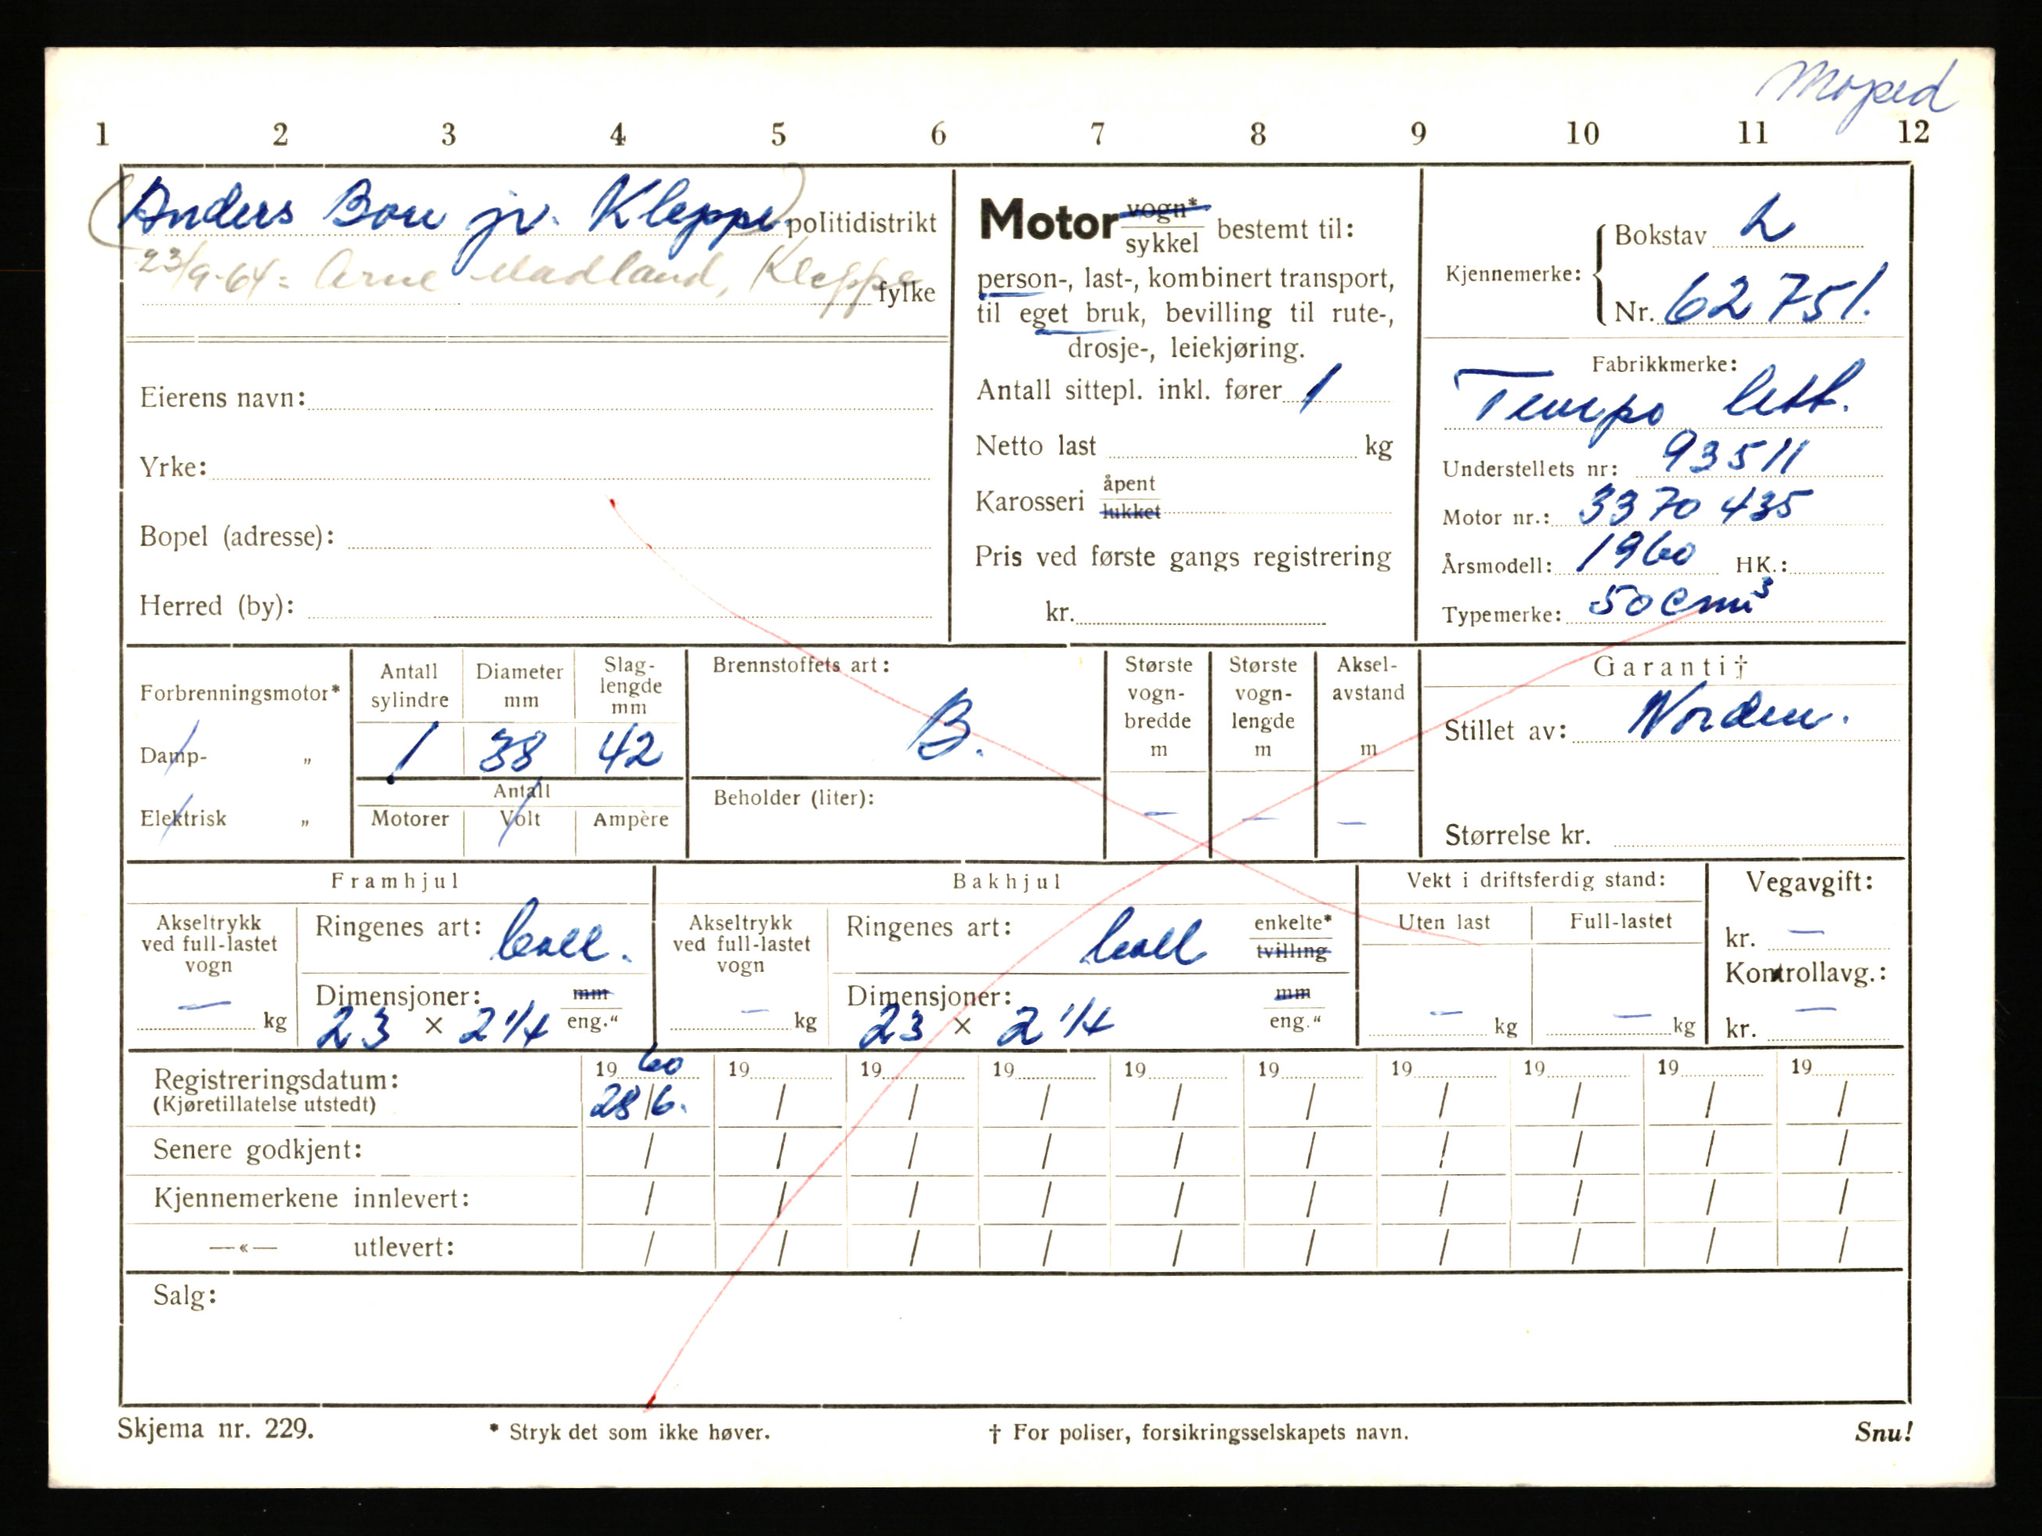 Moped
1 2 3 4 5 6 7 8 9 10 11 12
(Anders Bore jr. Kleppe) politidistrikt
23/9-64: Arne Madland, Kleppe fylke
Eierens navn:
Yrke:
Bopel (adresse):
Herred (by):
Motor vogn* / sykkel bestemt til:
person-, last-, kombinert transport,
til eget bruk, bevilling til rute-,
drosje-, leiekjøring.
Antall sittepl. inkl. fører 1
Netto last kg
Karosseri åpent / lukket
Pris ved første gangs registrering
kr.
Kjennemerke: { Bokstav L
Nr. 62751.
Fabrikkmerke:
Tempo lett.
Understellets nr: 93511
Motor nr.: 3370435
Årsmodell: 1960 HK.:
Typemerke: 50 cm³
Forbrenningsmotor*
Damp- „
Elektrisk „
Antall sylindre Diameter mm Slag-lengde mm
1 38 42
Antall
Motorer Volt Ampère
Brennstoffets art:
B.
Beholder (liter):
Største vogn-bredde m
–
Største vogn-lengde m
–
Aksel-avstand m
–
Garanti†
Stillet av: Norden.
Størrelse kr.
Framhjul
Akseltrykk ved full-lastet vogn
– kg
Ringenes art: ball.
Dimensjoner: mm
23 × 2 1/4 eng.“
Bakhjul
Akseltrykk ved full-lastet vogn
– kg
Ringenes art: ball enkelte* / tvilling
Dimensjoner: mm
23 × 2 1/4 eng.“
Vekt i driftsferdig stand:
Uten last Full-lastet
– kg – kg
Vegavgift:
kr. –
Kontrollavg.:
kr. –
Registreringsdatum: 19 60 19 19 19 19 19 19 19 19 19
(Kjøretillatelse utstedt) 28/6. / / / / / / / / /
Senere godkjent: / / / / / / / / / /
Kjennemerkene innlevert: / / / / / / / / / /
—«— utlevert: / / / / / / / / / /
Salg:
Skjema nr. 229. * Stryk det som ikke høver. † For poliser, forsikringsselskapets navn. Snu!